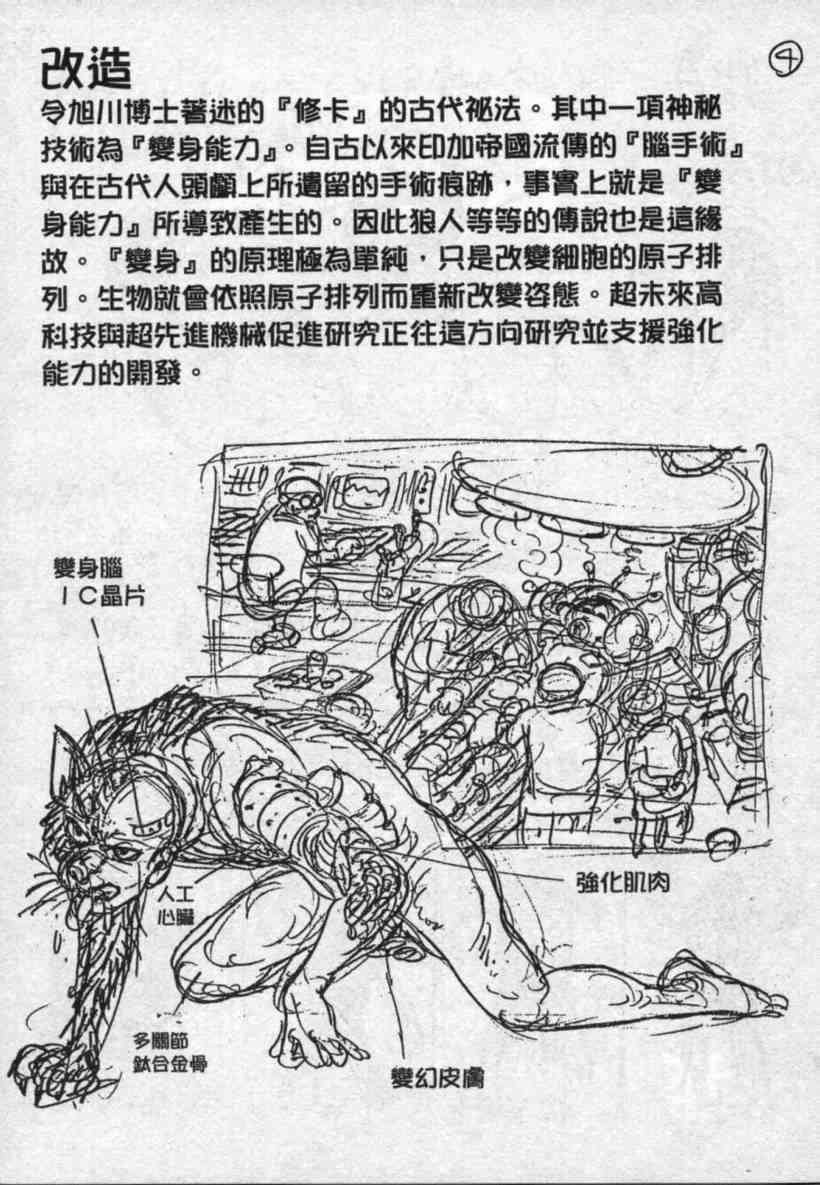 ④
改造
令旭川博士著迷的『修卡』的古代祕法。其中一項神秘
技術為『變身能力』。自古以來印加帝國流傳的『腦手術』
與在古代人頭顱上所遺留的手術痕跡，事實上就是『變
身能力』所導致產生的。因此狼人等等的傳說也是這緣
故。『變身』的原理極為單純，只是改變細胞的原子排
列。生物就會依照原子排列而重新改變姿態。超未來高
科技與超先進機械促進研究正往這方向研究並支援強化
能力的開發。
變身腦
ＩＣ晶片
強化肌肉
人工
心臟
多關節
鈦合金骨
變幻皮膚